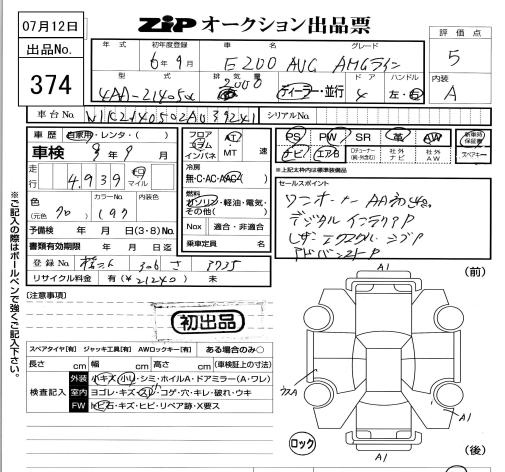 07月12日
出品No.
374
ZiP オークション出品票
評価点
5
内装
A
年式 初年度登録 車名 グレード
6年9月 E200 AVG AMGライン
型式 排気量 ドア ハンドル
2000
ディーラー・並行 4 左・右
車台No. シリアルNo.
車歴 自家用・レンタ・( )
車検 9年9月
走行 4,939 km マイル
色 (元色 クロ) カラーNo. (197) 内装色
予備検 年 月 日(3・8)No.
書類有効期限 年 月 日迄
登録No. 306 さ
リサイクル料金 有(¥21240) 未
フロア コラム インパネ AT MT 速
冷房
無・C・AC・AAC
燃料
ガソリン・軽油・電気・その他( )
Nox 適合・非適合
乗車定員 名
PS PW SR 革 AW 新車時保証書
ナビ エアB Dチューナー(純・外含む) 社外ナビ 社外AW スペアキー
※上記太枠内は標準装備品
セールスポイント
ワンオーナー AA初出品
デジタルインテリアP
レザーエクスクルーシブP
アドバンスドP
※ご記入の際はボールペンで強くご記入下さい。
(注意事項)
初出品
スペアタイヤ[有] ジャッキ工具[有] AWロックキー[有] ある場合のみ○
長さ cm 幅 cm 高さ cm (車検証上の寸法)
検査記入
外装 小キズ・小凹・シミ・ホイルA・ドアミラー(A・ワレ)
室内 ヨゴレ・キズ・スレ・コゲ・穴・キレ・破れ・ウキ
FW トビ石・キズ・ヒビ・リペア跡・X要ス
A1
(前)
ウスA
A1
ロック
A1
(後)